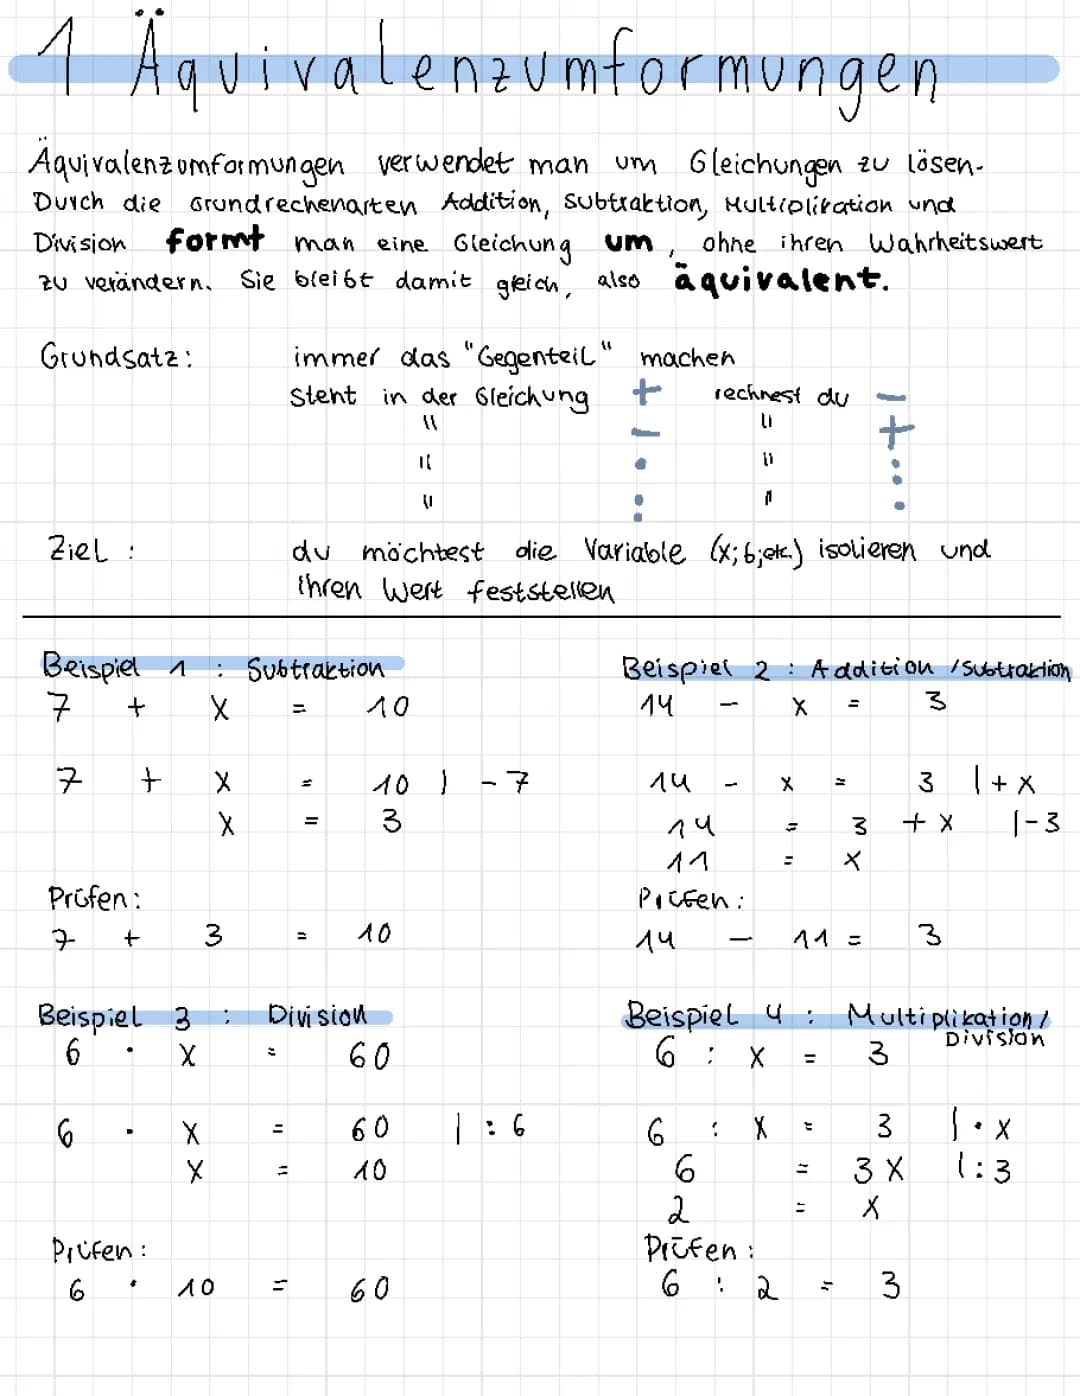 1 Äquivalenzumformungen
Äquivalenzumformungen verwendet man um Gleichungen zu lösen.
Durch die Grundrechenarten Addition, Subtraktion, Multiplikation und
Division formt man eine Gleichung um, ohne ihren Wahrheitswert
zu verändern. Sie bleibt damit gleich, also äquivalent.
Grundsatz: immer das "Gegenteil" machen
steht in der Gleichung + rechnest du -
" - " +
" · " :
" : " ·
Ziel : du möchtest die Variable (x; b; etc.) isolieren und
ihren Wert feststellen
Beispiel 1 : Subtraktion
7 + x = 10
7 + x = 10 | -7
x = 3
Prüfen:
7 + 3 = 10
Beispiel 2 : Addition /Subtraktion
14 - x = 3
14 - x = 3 | + x
14 = 3 + x |-3
11 = x
Prüfen:
14 - 11 = 3
Beispiel 3 : Division
6 · x = 60
6 · x = 60 | : 6
x = 10
Prüfen:
6 · 10 = 60
Beispiel 4 : Multiplikation/
Division
6 : x = 3
6 : x = 3 | · x
6 = 3x | : 3
2 = x
Prüfen:
6 : 2 = 3